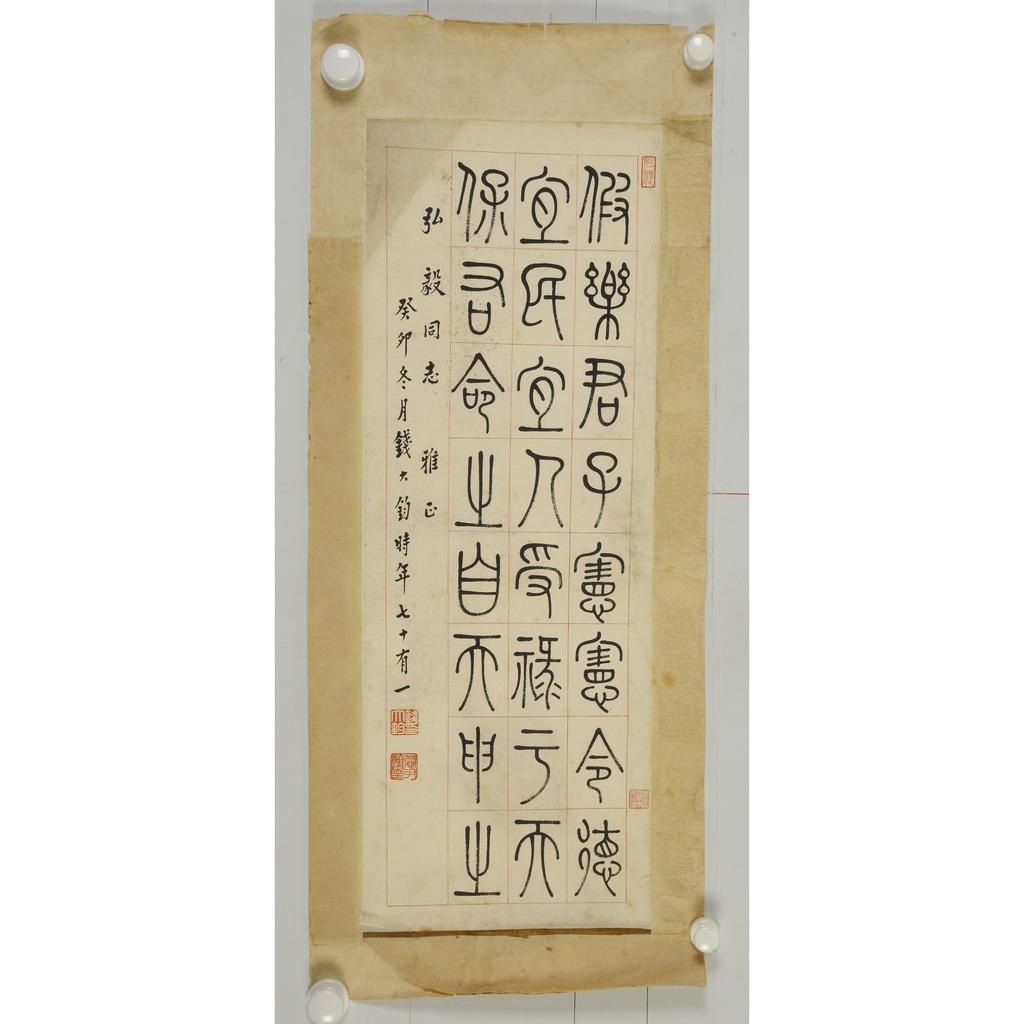 假樂君子憲憲令德
宜民宜人受祿亏天
保右命之自天申之
弘毅同志 雅正
癸卯冬月錢大鈞時年七十有一